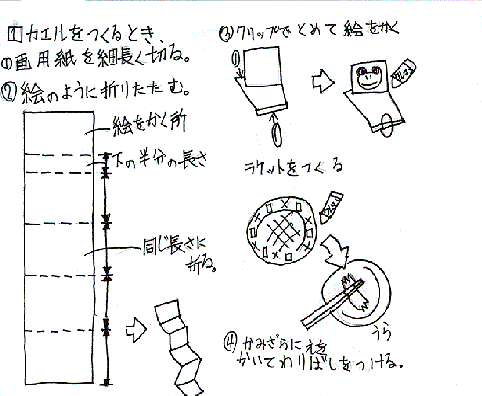 1 カエルをつくるとき、
① 画用紙を細長く切る。
② 絵のように折りたたむ。
絵をかく所
下の半分の長さ
同じ長さに
折る。
③ クリップでとめて絵をかく
ラケットをつくる
うら
④ かみざらにえを
かいてわりばしをつける。